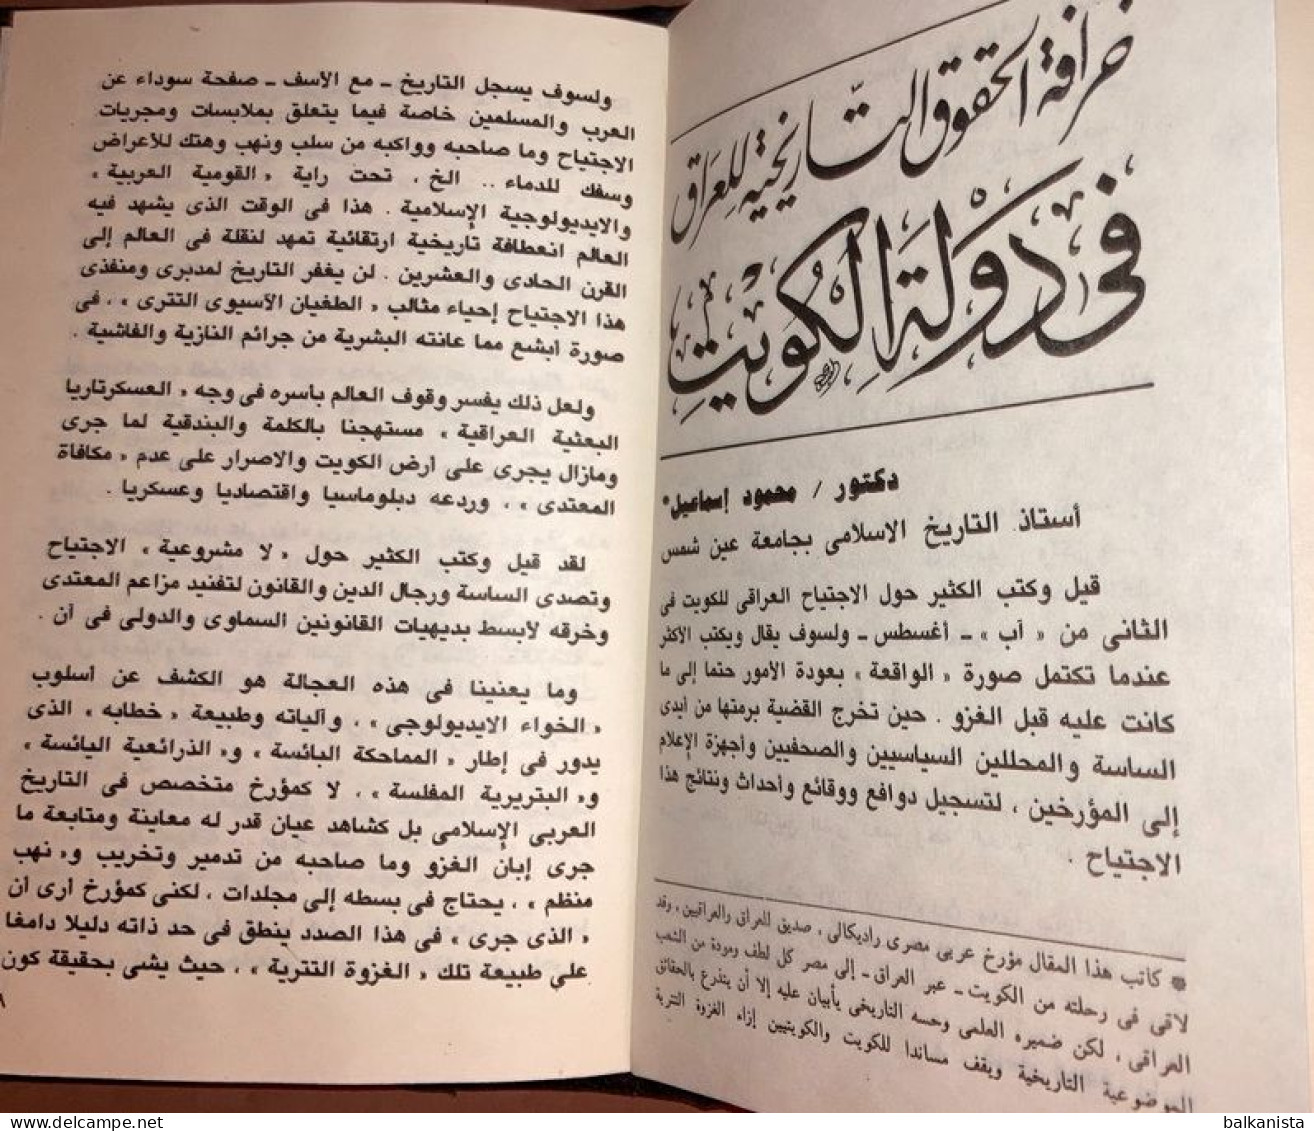 خرافة الحقوق التاريخية للعراق
في دولة الكويت
دكتور / محمود إسماعيل*
أستاذ التاريخ الاسلامى بجامعة عين شمس
قيل وكتب الكثير حول الاجتياح العراقى للكويت فى
الثانى من « آب » ـ أغسطس ـ ولسوف يقال ويكتب الأكثر
عندما تكتمل صورة « الواقعة » بعودة الأمور حتما إلى ما
كانت عليه قبل الغزو . حين تخرج القضية برمتها من أيدى
الساسة والمحللين السياسيين والصحفيين وأجهزة الإعلام
إلى المؤرخين ، لتسجيل دوافع ووقائع وأحداث ونتائج هذا
الاجتياح .
* كاتب هذا المقال مؤرخ عربى مصرى راديكالى ، صديق للعراق والعراقيين ، وقد
لاقى فى رحلته من الكويت ـ عبر العراق ـ إلى مصر كل لطف ومودة من الشعب
العراقى ، لكن ضميره العلمى وحسه التاريخى يأبيان عليه إلا أن يتذرع بالحقائق
الموضوعية التاريخية ويقف مساندا للكويت والكويتيين إزاء الغزوة التترية
ولسوف يسجل التاريخ ـ مع الأسف ـ صفحة سوداء عن
العرب والمسلمين خاصة فيما يتعلق بملابسات ومجريات
الاجتياح وما صاحبه وواكبه من سلب ونهب وهتك للأعراض
وسفك للدماء .. الخ ، تحت راية « القومية العربية »
والايديولوجية الإسلامية . هذا فى الوقت الذى يشهد فيه
العالم انعطافة تاريخية ارتقائية تمهد لنقلة فى العالم إلى
القرن الحادى والعشرين . لن يغفر التاريخ لمدبرى ومنفذى
هذا الاجتياح إحياء مثالب « الطغيان الآسيوى التترى » ، فى
صورة أبشع مما عانته البشرية من جرائم النازية والفاشية .
ولعل ذلك يفسر وقوف العالم بأسره فى وجه « العسكرتاريا
البعثية العراقية » مستهجنا بالكلمة والبندقية لما جرى
ومازال يجرى على أرض الكويت والاصرار على عدم « مكافاة
المعتدى » ، وردعه دبلوماسيا واقتصاديا وعسكريا .
لقد قيل وكتب الكثير حول « لا مشروعية » الاجتياح
وتصدى الساسة ورجال الدين والقانون لتفنيد مزاعم المعتدى
وخرقه لأبسط بديهيات القانونين السماوى والدولى فى آن .
وما يعنينا فى هذه العجالة هو الكشف عن أسلوب
« الخواء الايديولوجى » ، وآلياته وطبيعة « خطابه » الذى
يدور فى إطار « المماحكة البائسة » و« الذرائعية اليائسة »
و« البتريرية المفلسة » ، لا كمؤرخ متخصص فى التاريخ
العربى الإسلامى بل كشاهد عيان قدر له معاينة ومتابعة ما
جرى إبان الغزو وما صاحبه من تدمير وتخريب و« نهب
منظم » ، يحتاج فى بسطه إلى مجلدات ، لكنى كمؤرخ أرى أن
« الذى جرى » فى هذا الصدد ينطق فى حد ذاته دليلا دامغا
على طبيعة تلك « الغزوة التترية » ، حيث يشى بحقيقة كون
٨
balkanista